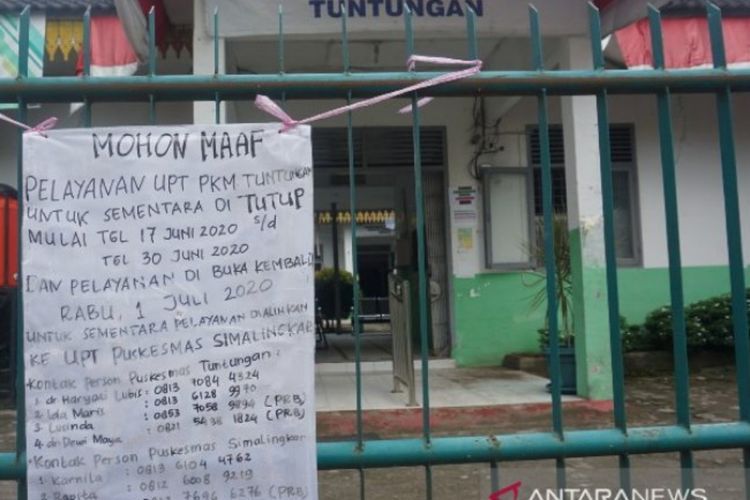 TUNTUNGAN
MOHON MAAF
PELAYANAN UPT PKM TUNTUNGAN
UNTUK SEMENTARA DI TUTUP
MULAI TGL 17 JUNI 2020 s/d
TGL 30 JUNI 2020
DAN PELAYANAN DI BUKA KEMBALI
RABU, 1 JULI 2020
UNTUK SEMENTARA PELAYANAN DIALIHKAN
KE UPT PUSKESMAS SIMALINGKAR
Kontak Person Puskesmas Tuntungan :
1. dr Haryati Lubis : 0813 7084 4324
2. Ida Maris : 0813 6128 9970
3. Lucinda : 0853 7058 9894 (PRB)
4. dr Dewi Maya : 0821 5438 1824 (PRB)
Kontak Person Puskesmas Simalingkar
1 Karnila : 0813 6104 4762
0812 6008 9219
7696 6276 (PRB)
ANTARANEWS